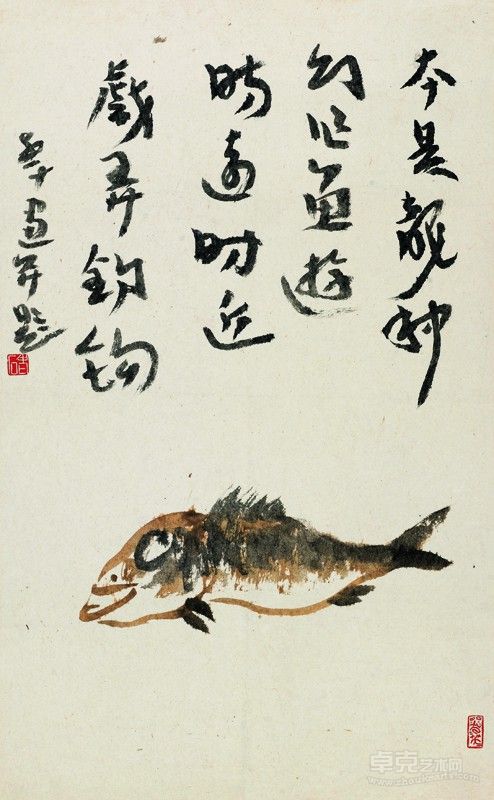 本是龍种
幻作魚遊
時遠时近
戲弄釣鈎
畫并題
卓克艺术网
www.zhuokearts.com